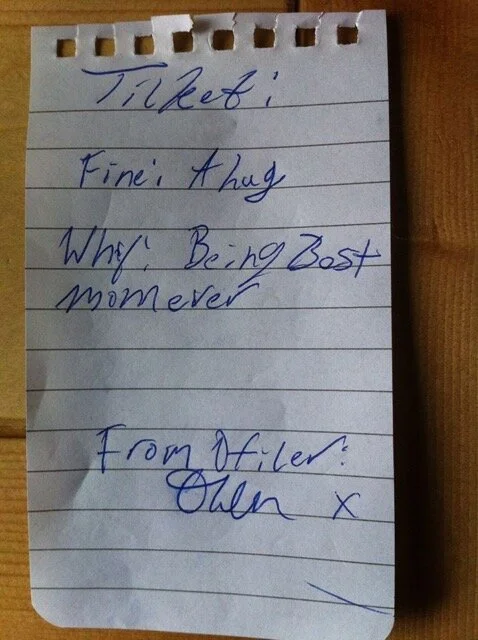 Ticket:
Fine: A hug
Why: Being Best
mom ever
From Oficer:
Owen x